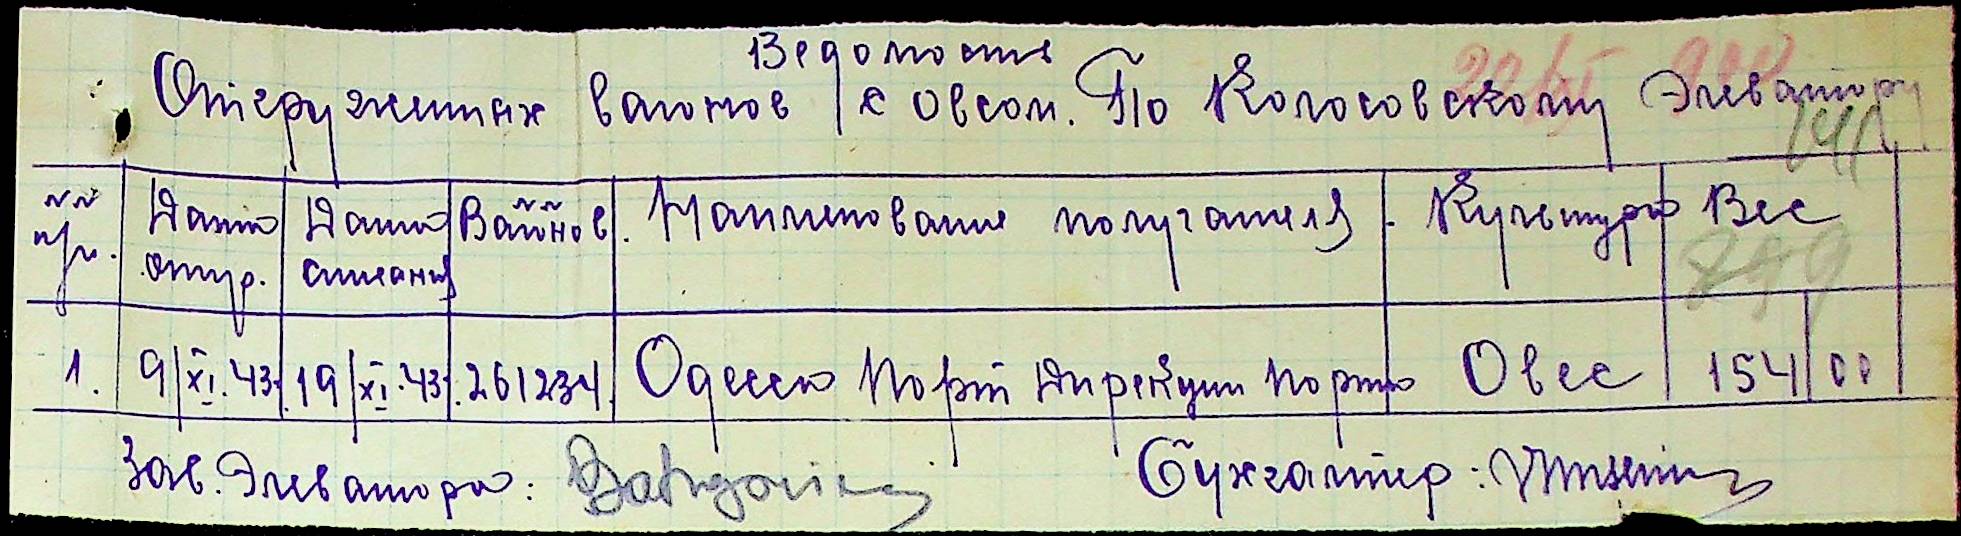 Ведомость
Отгруженных вагонов с овсом. По Колосовскому Элеватору
№№ п/п. Дата отгр. Дата списания Вагонов. Наименование получателя. Культура Вес
1. 9/XI.43. 19/XI.43. 261234. Одесса Порт Дирекции порта Овес 154 00
Зав. Элеватора: Бухгалтер: